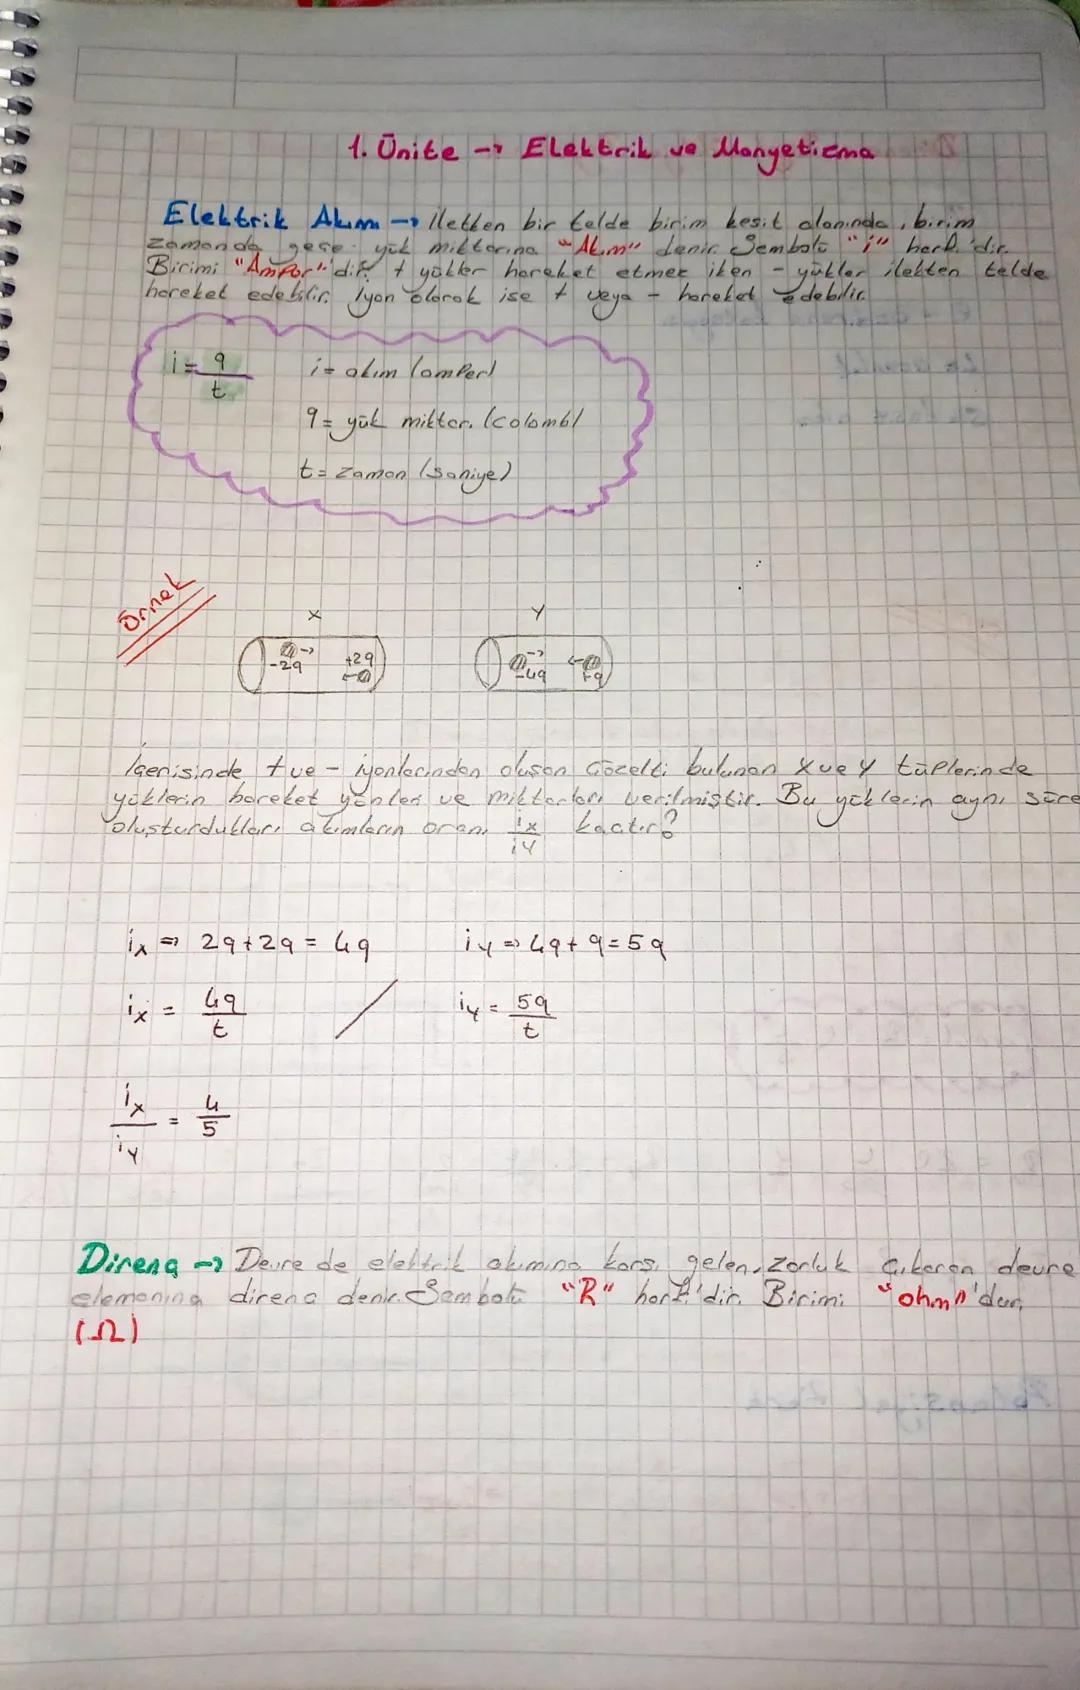 1. Ünite → Elektrik ve Manyetizma
Elektrik Akımı → İletken bir telde birim kesit alanında, birim
zamanda geçe yük miktarına "Akım" denir. Sembolü "i" harfi'dir.
Birimi "Amper"'dir. + yükler hareket etmez iken - yükler iletken telde
hareket edebilir. İyon olarak ise + veya - hareket edebilir.
i = q/t i = akım (amper)
q = yük miktarı (colomb)
t = zaman (saniye)
Örnek
X Y
-2q → +2q ← -4q → +q ←
İçerisinde + ve - iyonlarından oluşan çözelti bulunan X ve Y tüplerinde
yüklerin hareket yönleri ve miktarları verilmiştir. Bu yüklerin aynı süre
oluşturdukları akımların oranı ix/iY kaçtır?
ix ⇒ 2q+2q = 4q iy ⇒ 4q+q = 5q
ix = 4q/t / iy = 5q/t
ix/iy = 4/5
Direnç → Devre de elektrik akımına karşı gelen, zorluk çıkaran devre
elemanına direnç denir. Sembolü "R" harfi'dir. Birimi "ohm"'dur.
(Ω)